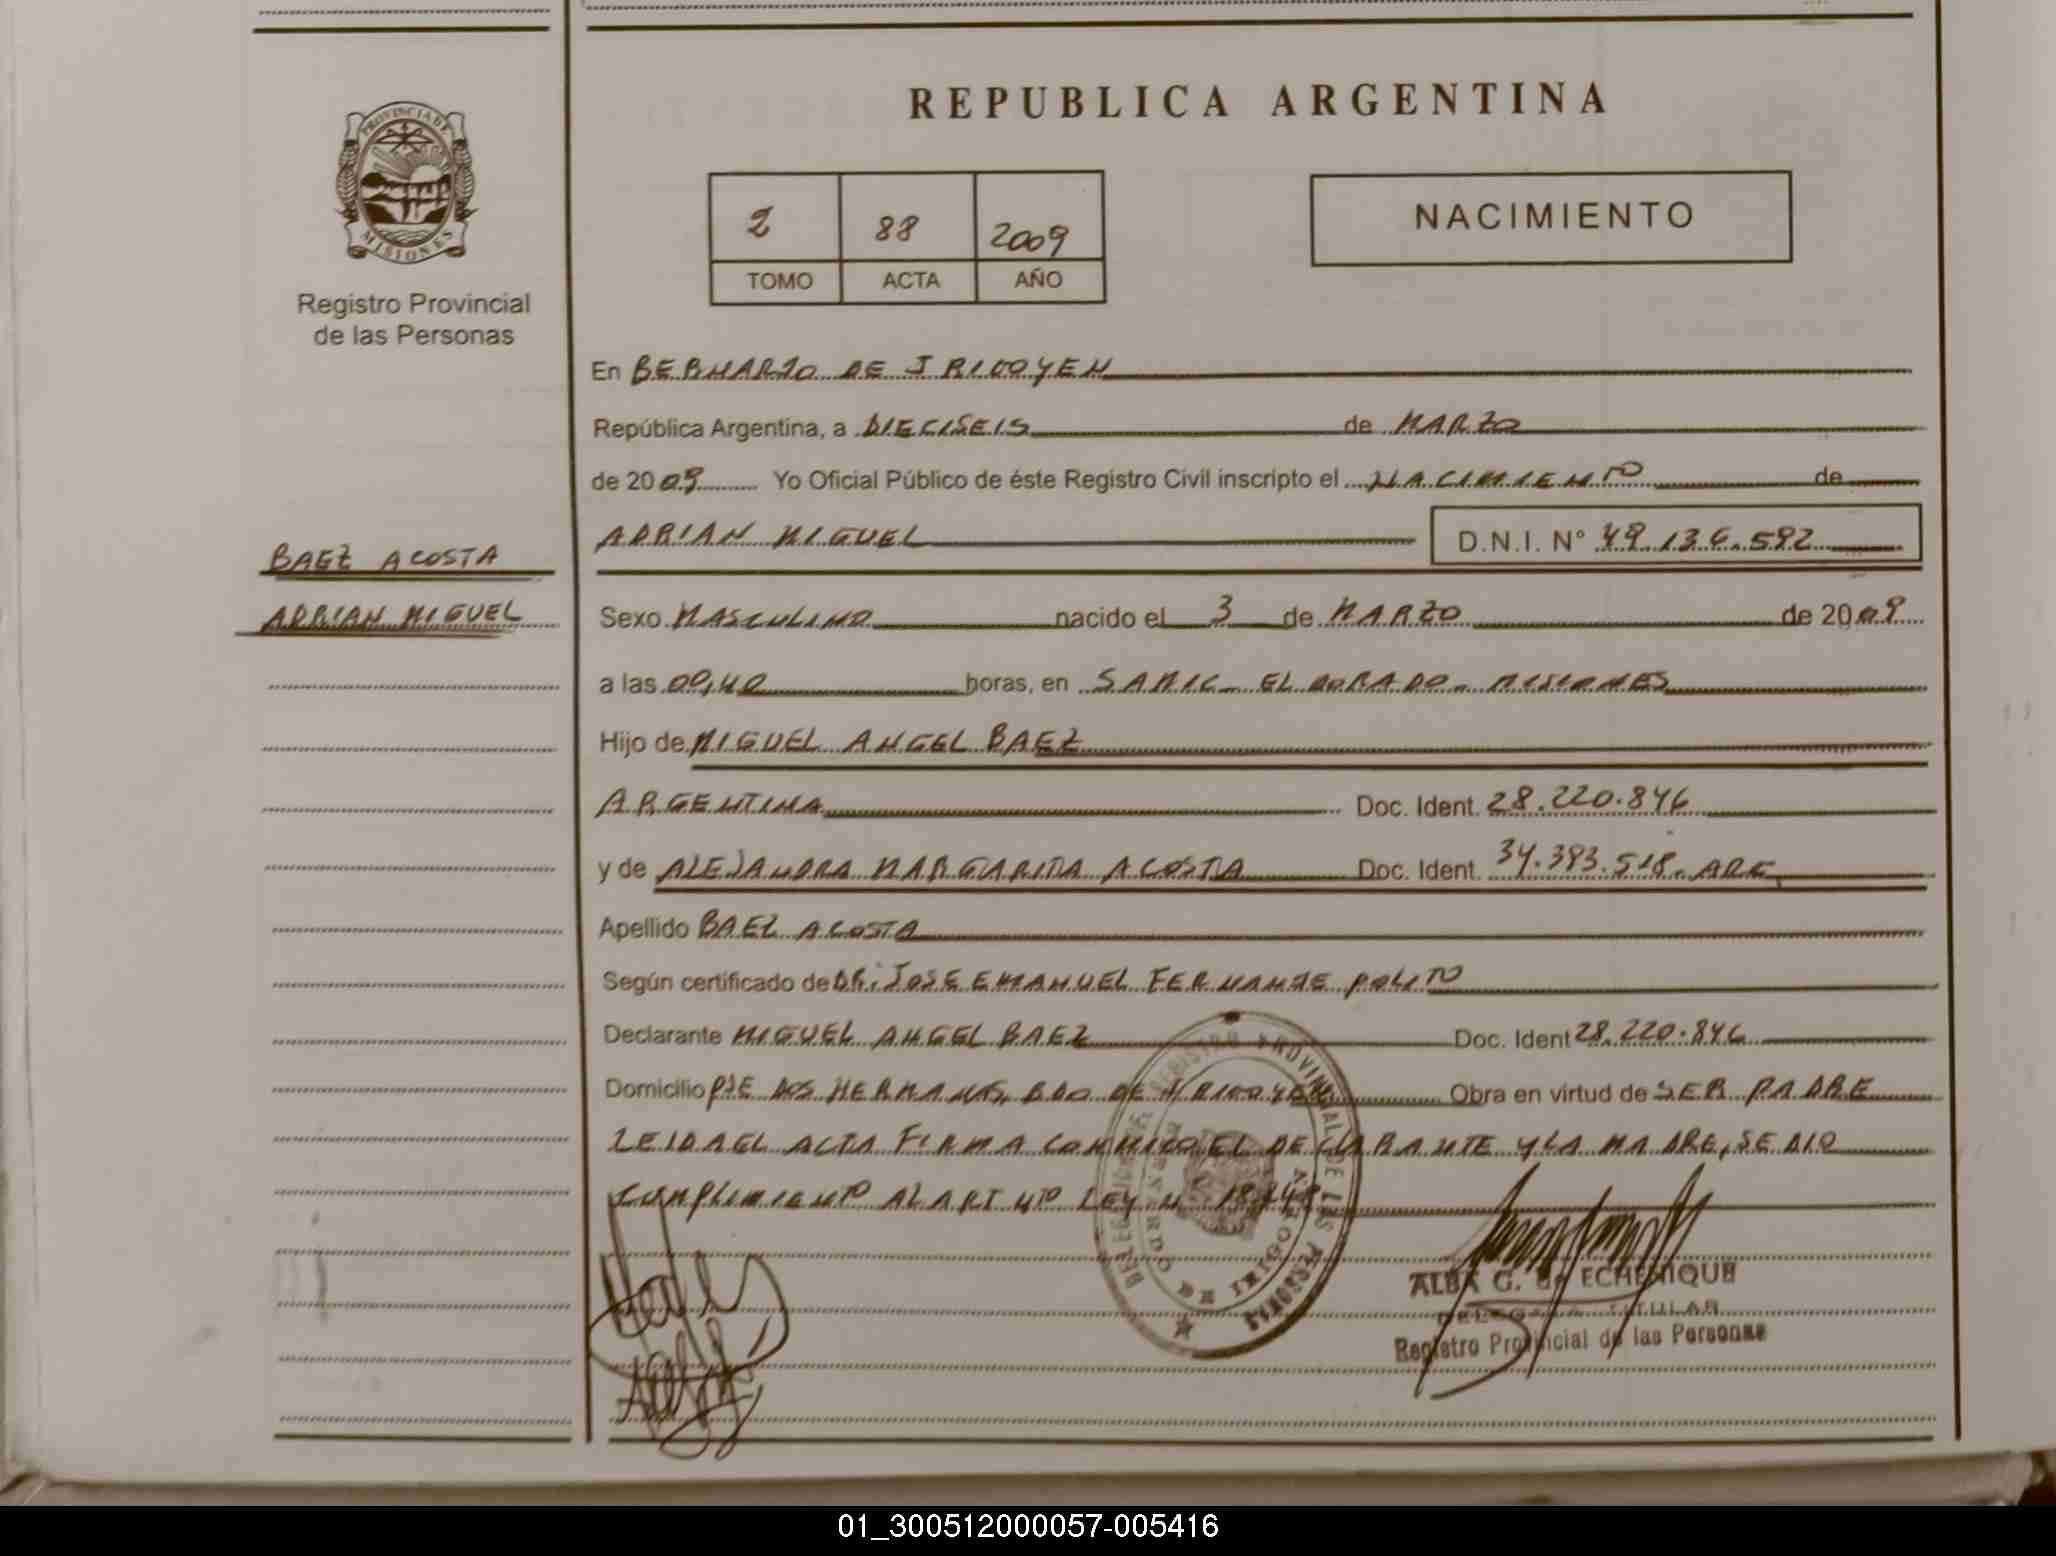 REPUBLICA ARGENTINA
PROVINCIA DE
MISIONES
Registro Provincial
de las Personas
2 88 2009
TOMO ACTA AÑO
NACIMIENTO
En BERNARDO DE IRIGOYEN
República Argentina, a DIECISEIS de MARZO
de 2009 Yo Oficial Público de éste Registro Civil inscripto el NACIMIENTO de
ADRIAN MIGUEL D.N.I. N° 49.136.592
BAEZ ACOSTA
ADRIAN MIGUEL
Sexo MASCULINO nacido el 3 de MARZO de 2009
a las 00,40 horas, en SAMIC - ELDORADO - MISIONES
Hijo de MIGUEL ANGEL BAEZ
ARGENTINA Doc. Ident. 28.220.846
y de ALEJANDRA MARGARITA ACOSTA Doc. Ident. 34.393.518. ARG
Apellido BAEZ ACOSTA
Según certificado de DR: JOSE EMANUEL FERNANDE POLITO
Declarante MIGUEL ANGEL BAEZ Doc. Ident 28.220.846
Domicilio PJE DOS HERMANAS, BDO DE IRIGOYEN Obra en virtud de SER PADRE
LEIDA EL ACTA FIRMA CONMIGO EL DECLARANTE Y LA MADRE, SE DIO
CUMPLIMIENTO AL ART 4TO LEY N° 18.248
REGISTRO PROVINCIAL DE LAS PERSONAS
ALBA G. de ECHENIQUE
DELEGADA TITULAR
Registro Provincial de las Personas
01_300512000057-005416